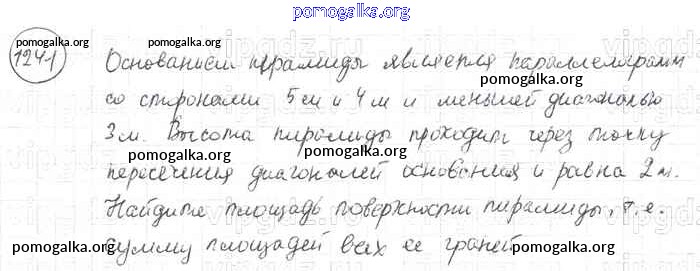 pomogalka.org
1241
pomogalka.org pomogalka.org pomogalka.org
Основанием пирамиды является параллелограмм
pomogalka.org
со сторонами 5 см и 4 м и меньшей диагональю
pomogalka.org
3 м. Высота пирамиды проходит через точку
pomogalka.org pomogalka.org
пересечения диагоналей основания и равна 2 м.
Найдите площадь поверхности пирамиды, т.е.
pomogalka.org pomogalka.org pomogalka.org
сумму площадей всех ее граней